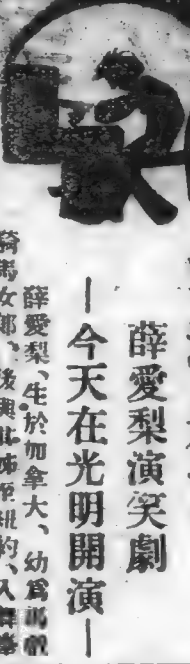 薛愛梨演笑劇
—今天在光明開演—
薛愛梨、生於加拿大、幼爲
騎馬女郎、後與其姊至紐約、入